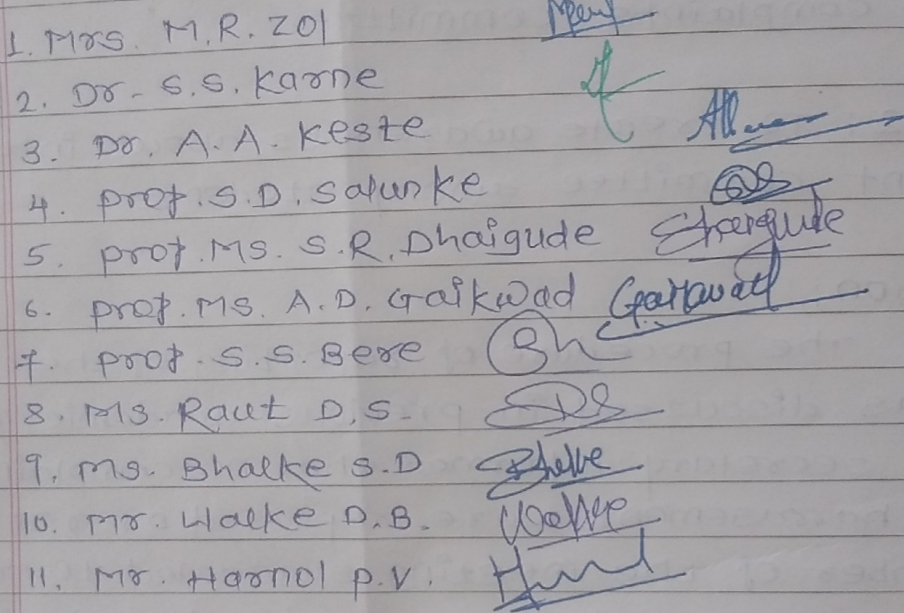 1. Mrs. M.R. Zol
2. Dr. S.S. Karne
3. Dr. A.A. Keste
4. Prof. S.D. Salunke
5. Prof. Ms. S.R. Dhaigude
6. Prof. Ms. A.D. Gaikwad Gaikwad
7. Prof. S.S. Bere
8. Ms. Raut D.S.
9. Ms. Bhalke S.D
10. Mr Halke D.B.
11. Mr. Harnol P.V.